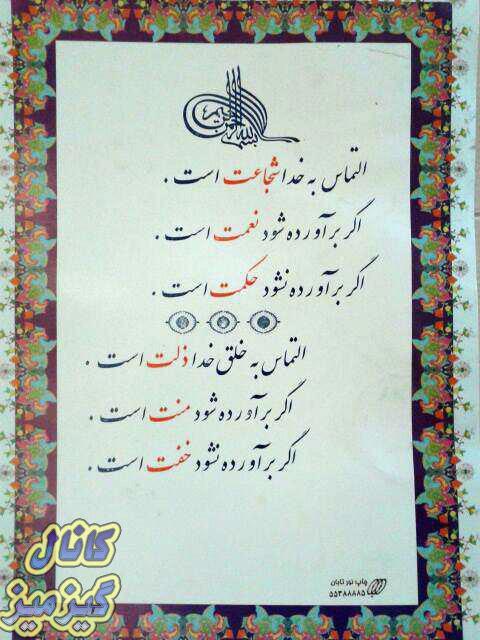 بسم الله الرحمن الرحیم
التماس به خدا شجاعت است .
اگر برآورده شود نعمت است .
اگر برآورده نشود حکمت است .
التماس به خلق خدا ذلت است .
اگر برآورده شود منت است .
اگر برآورده نشود خفت است .
چاپ نور تابان
۵۵۳۸۸۸۸۵
کانال
گیز میز